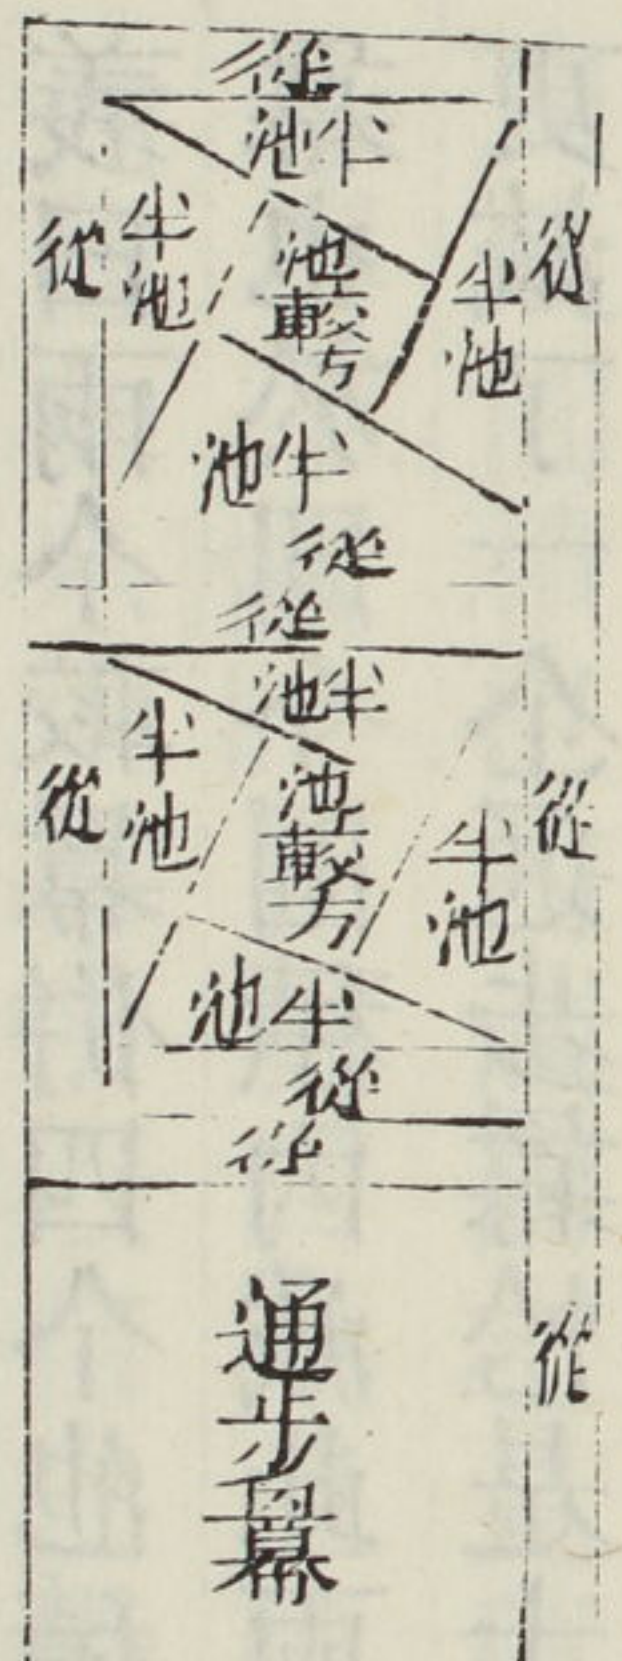 從
半池
從
半池
池較方
半池
從
半池
從
從
半池
從
半池
池較方
半池
從
半池
從
從
通步冪
從